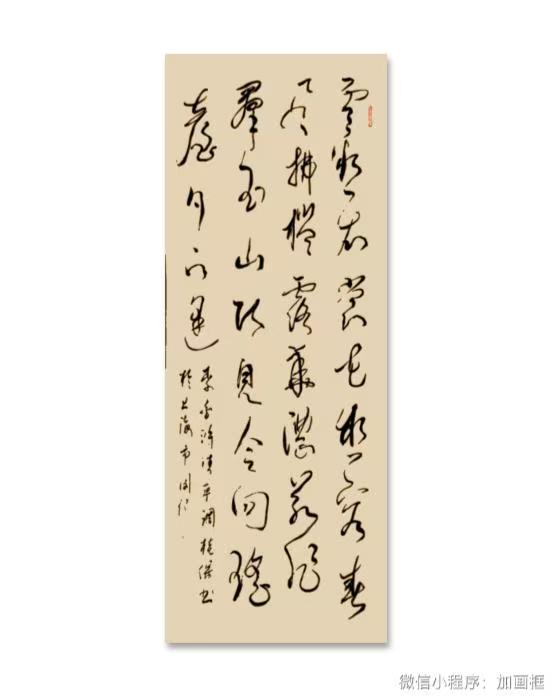 雲想衣裳花想容春
風拂檻露華濃若非
羣玉山頭見会向瑤
臺月下逢
李白詩清平調書
於上海市
微信小程序：加画框